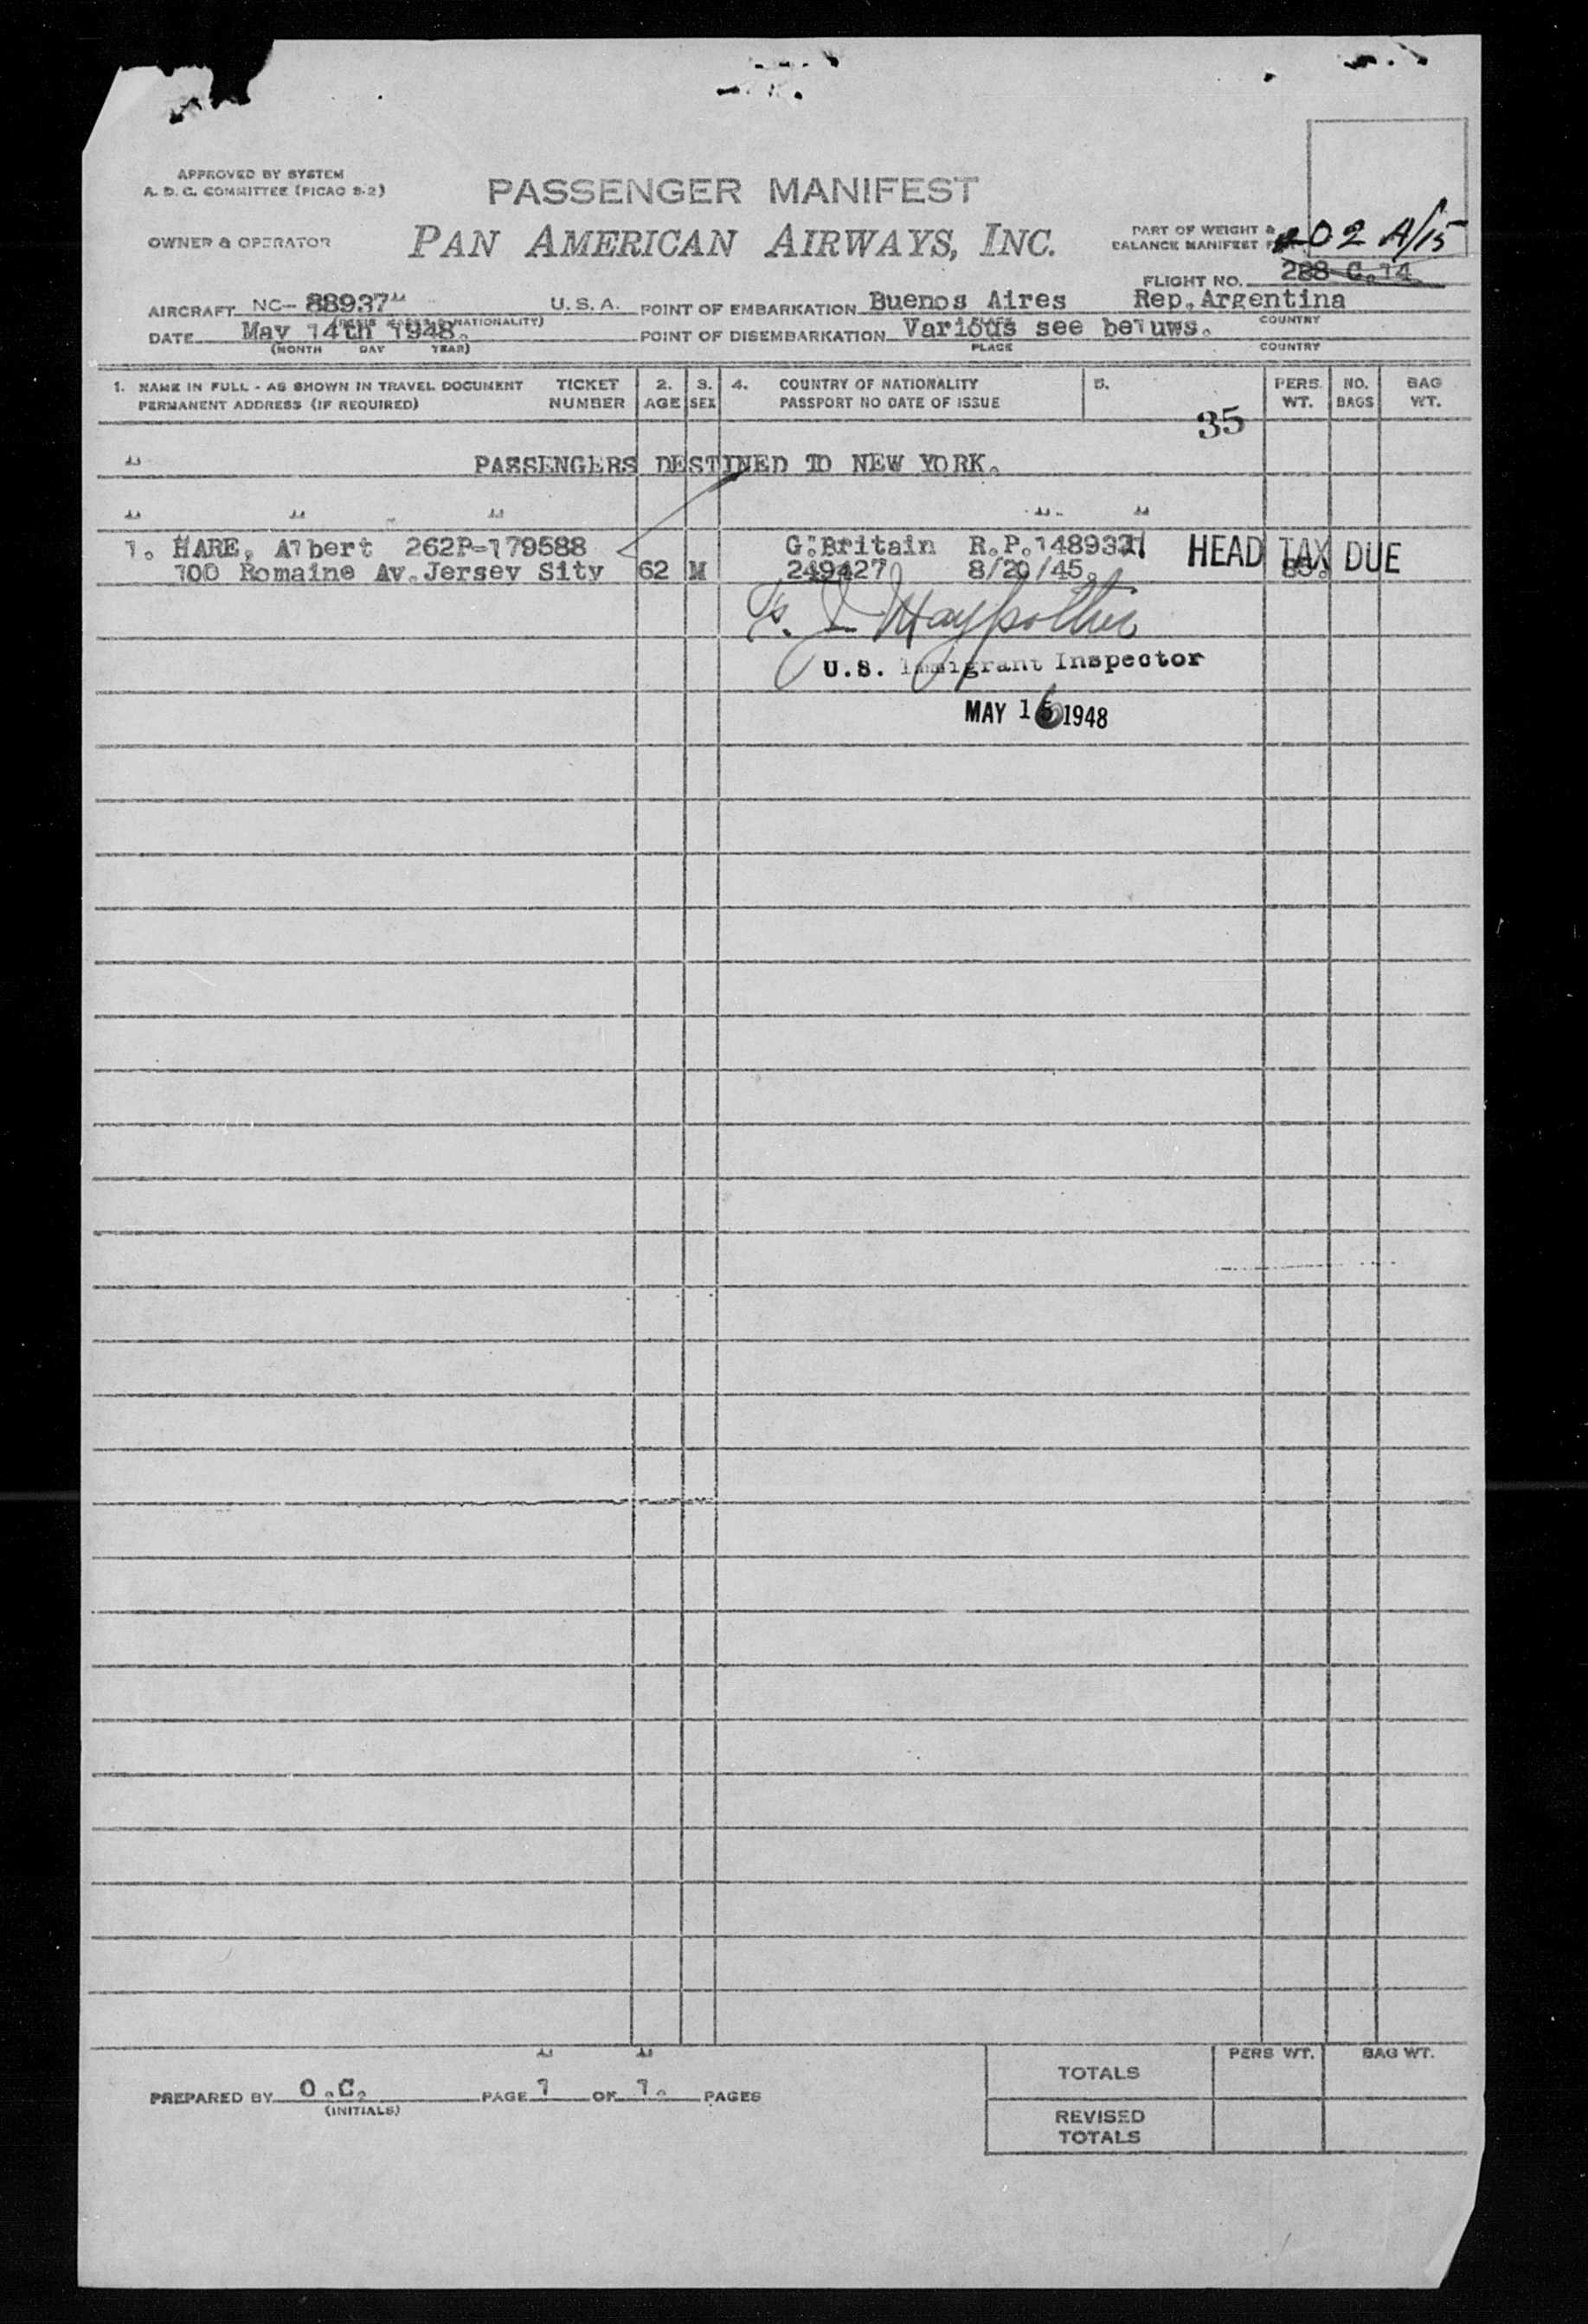 APPROVED BY SYSTEM
A. D. C. COMMITTEE (PICAO S-2)
PASSENGER MANIFEST
OWNER & OPERATOR
PAN AMERICAN AIRWAYS, INC.
PART OF WEIGHT &
BALANCE MANIFEST
202 A/15
FLIGHT NO. 288 C.14
AIRCRAFT NC- 88937 U.S.A. POINT OF EMBARKATION Buenos Aires Rep.Argentina
NATIONALITY) COUNTRY
DATE May 14th 1948. POINT OF DISEMBARKATION Various see beluws.
(MONTH DAY YEAR) PLACE COUNTRY
1. NAME IN FULL - AS SHOWN IN TRAVEL DOCUMENT TICKET 2. 3. 4. COUNTRY OF NATIONALITY 5. PERS. NO. BAG
PERMANENT ADDRESS (IF REQUIRED) NUMBER AGE SEX PASSPORT NO DATE OF ISSUE WT. BAGS WT.
35
PASSENGERS DESTINED TO NEW YORK.
1. HARE, Albert 262P-179588 G.Britain HEAD TAX DUE
100 Romaine Av.Jersey Sity 62 M 249427 8/20/45.
U.S. Immigrant Inspector
MAY 1 1948
PREPARED BY O.C. PAGE 1 OF 1. PAGES
(INITIALS)
TOTALS PERS WT. BAG WT.
REVISED
TOTALS